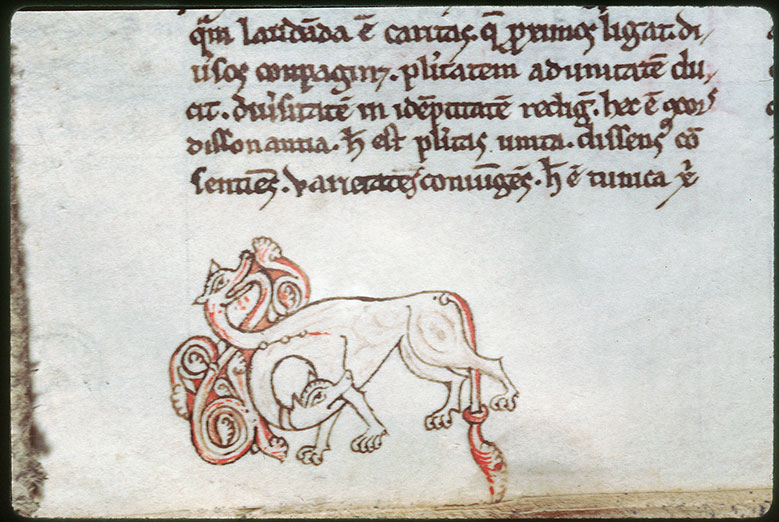 q̄m laudāda ē caritas. q̄ primos ligat. di
u'sos compagin⁊. pl'itatem ad unitatē du
cit. diu'sitatē in idēptitatē redig̃. hec ē
dissonantia. h̄ est pl'itas unita. dissensꝰ cō
sentiēs. varietates coniūgēs. h̄ ē tunica